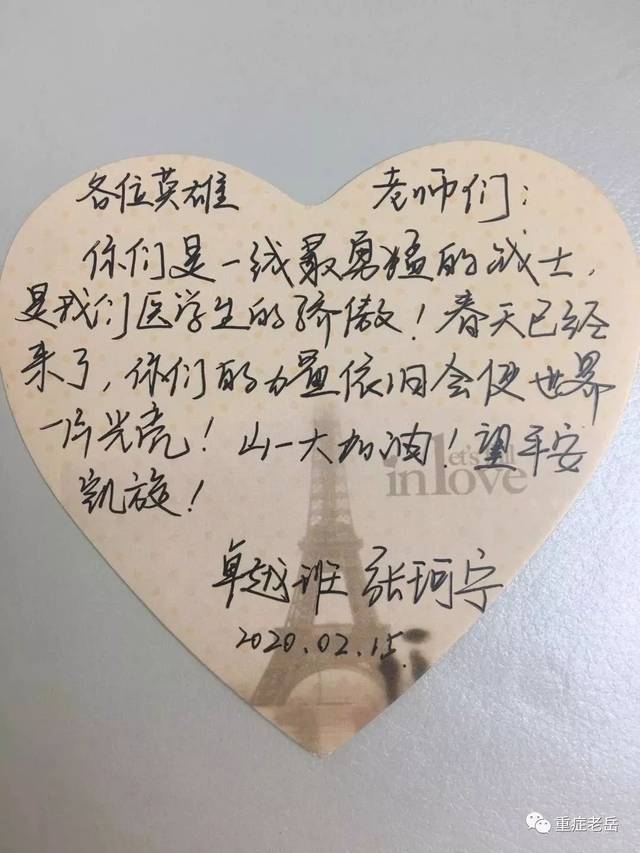 各位英雄 老师们：
你们是一线最勇猛的战士，
是我们医学生的骄傲！春天已经
来了，你们的力量依旧会使世界
一片光亮！山一大加油！望平安
凯旋！
let's fall
in love
卓越班 张珂宁
2020.02.15.
重症老岳